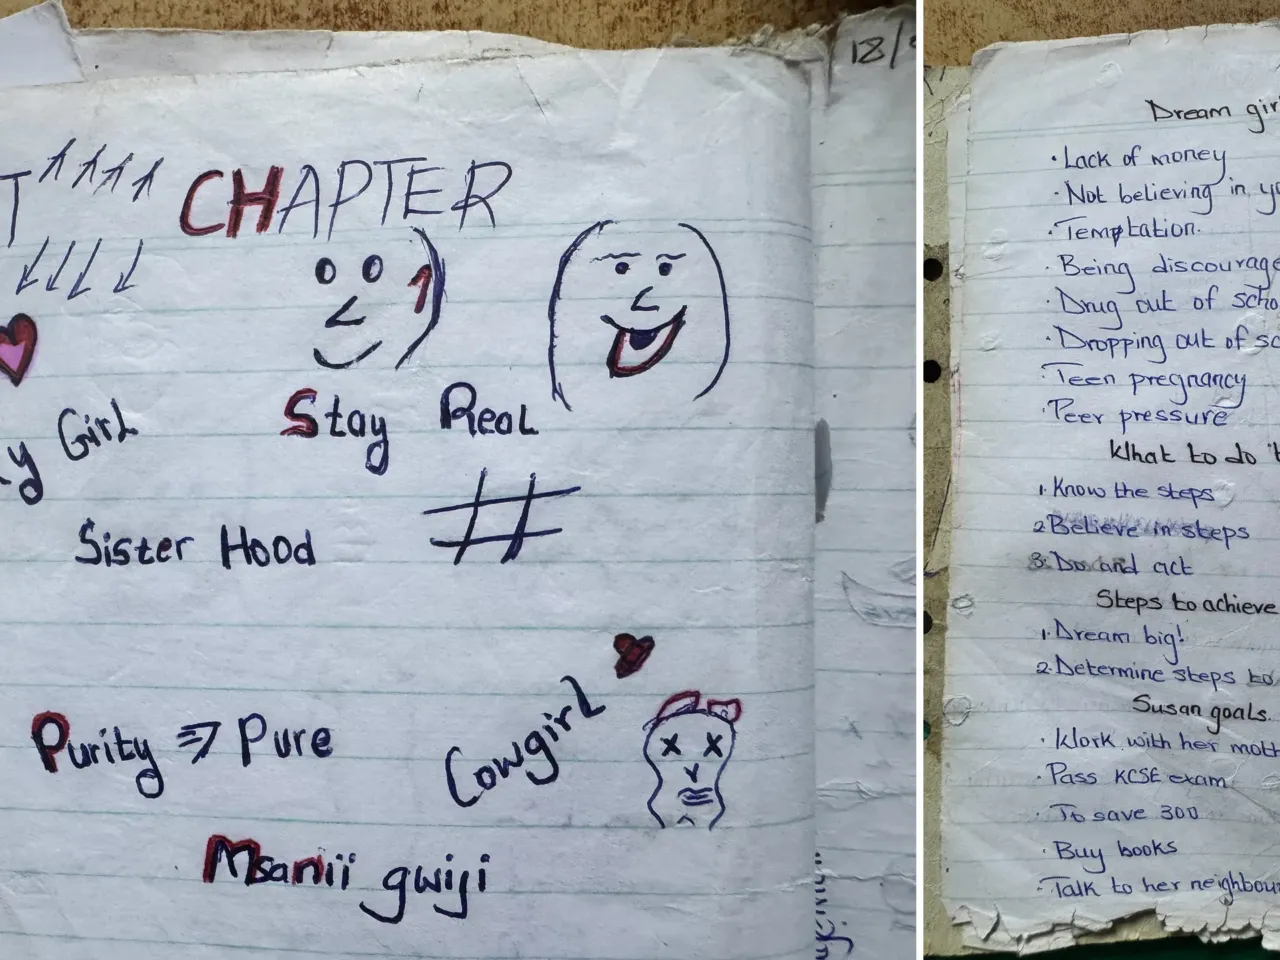 18/
T CHAPTER
Girl
Stay Real
Sister Hood
#
Purity ⇒ Pure
Cowgirl
Msanii gwiji
Dream gir
· Lack of money
· Not believing in yo
· Temptation.
· Being discourage
· Drug out of scho
· Dropping out of sc
· Teen pregnancy
· Peer pressure
What to do t
1. Know the steps
2. Believe in steps
3. Do and act
Steps to achieve
1. Dream big!
2. Determine steps to
Susan goals.
· Work with her moth
· Pass KCSE exam
· To save 300
· Buy books
· Talk to her neighbour